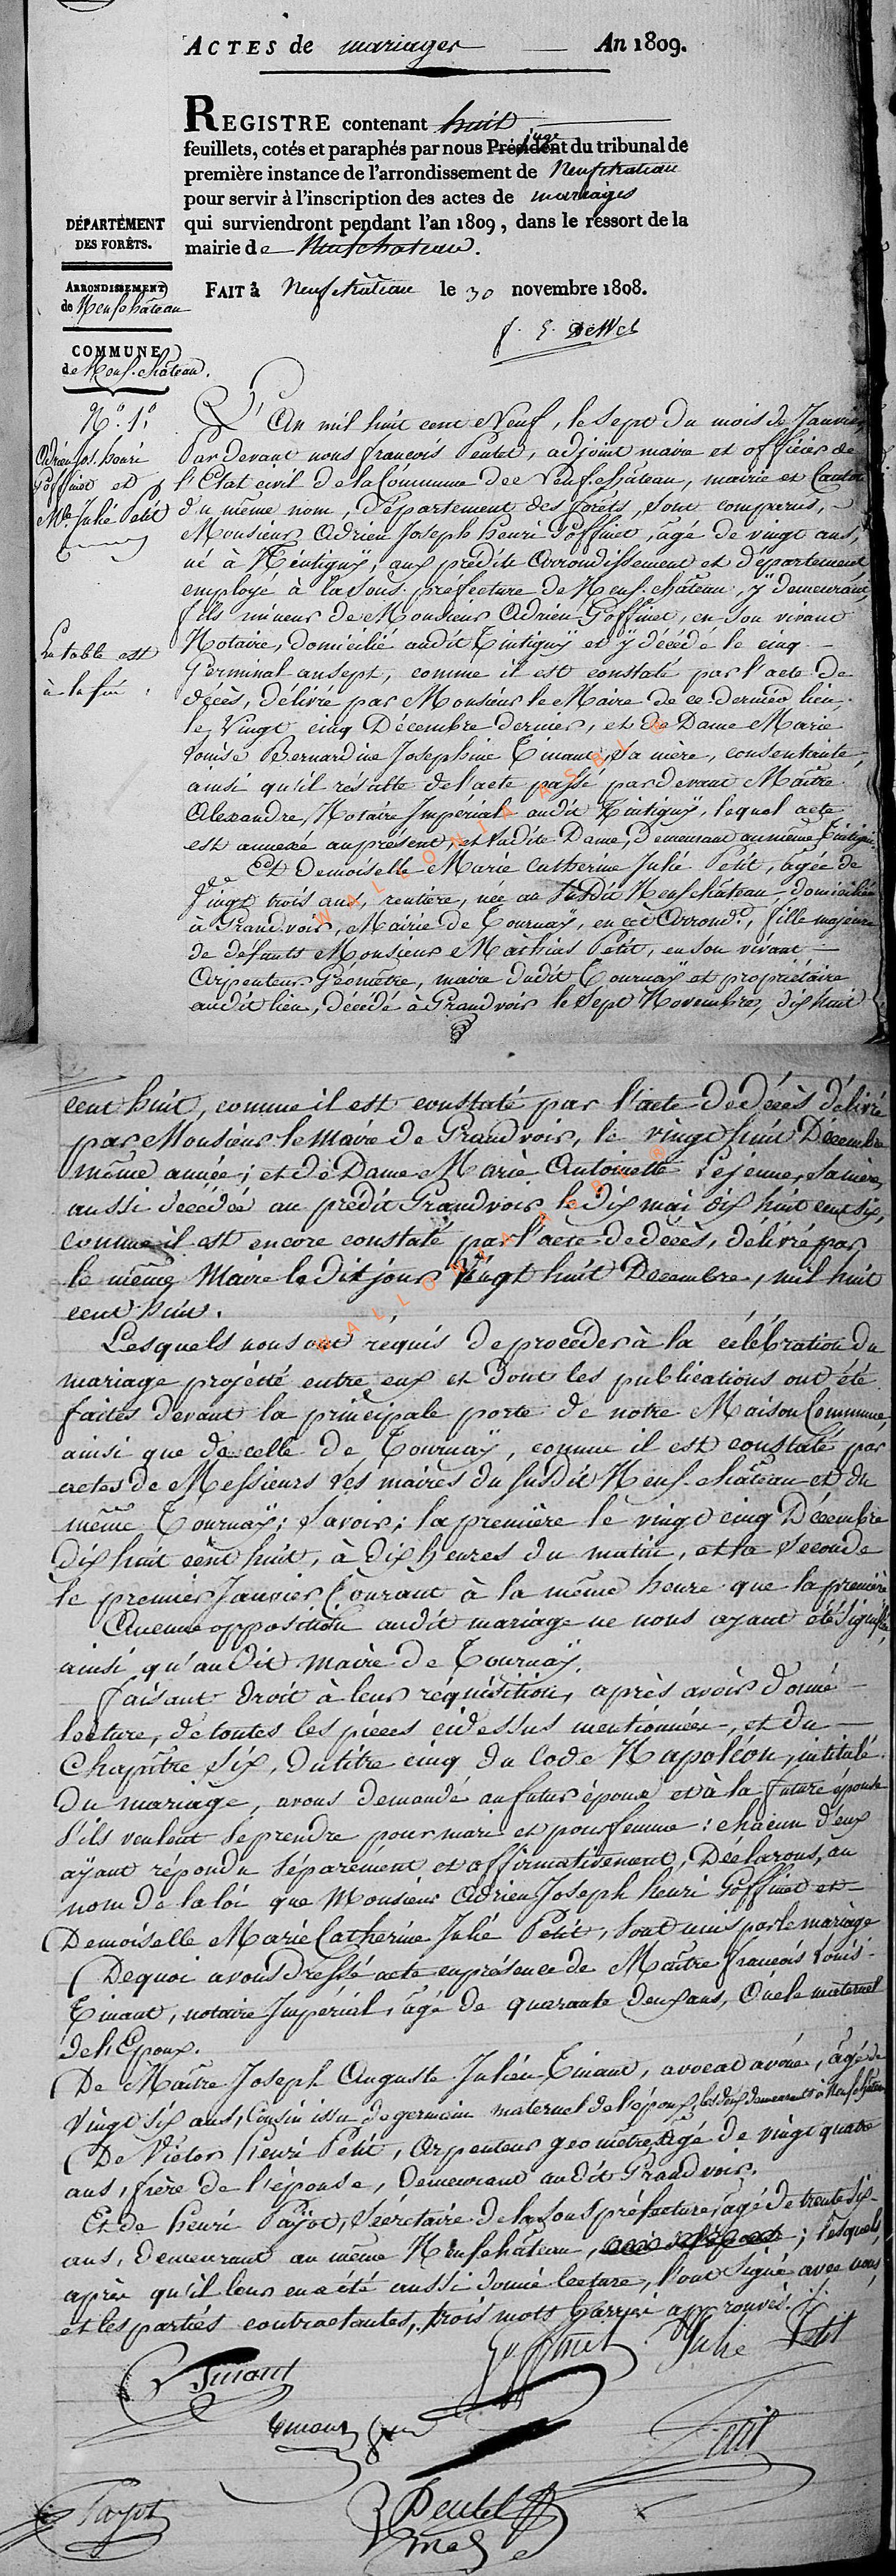 ACTES de mariages — An 1809.
REGISTRE contenant huit
feuillets, cotés et paraphés par nous Président juge du tribunal de
première instance de l'arrondissement de Neufchateau
pour servir à l'inscription des actes de mariages
qui surviendront pendant l'an 1809, dans le ressort de la
mairie de Neufchateau.
DÉPARTEMENT
DES FORÊTS.
ARRONDISSEMENT
de Neufchâteau
COMMUNE
de Neuf-château.
FAIT à Neufchâteau le 30 novembre 1808.
N.º 1.º
Adrien Jos. henri
Goffinet et
Mlle Julie Petit
La table est
à la fin.
L'An mil huit cent Neuf, le Sept du mois de Janvier,
Pardevant nous françois Peutet, adjoint maire et officier de
l'Etat civil de la Commune de Neufchâteau, mairie et Canton
du même nom, Département des forêts, sont comparus,
Monsieur Adrien Joseph henri Goffinet, âgé de vingt ans,
né à Tintignÿ, aux prédits Arrondissement et département
employé à la Sous-préfecture de Neuf-château, ÿ demeurant,
fils mineur de Monsieur Adrien Goffinet, en son vivant
Notaire, domicilié audit Tintignÿ et ÿ décédé le cinq
Germinal an sept, comme il est constaté par l'acte de
décès, délivré par Monsieur le Maire de ce dernier lieu
le Vingt cinq Décembre dernier, et de Dame Marie
Louise Bernardine Josephine Tinant, sa mère, consentante,
ainsi qu'il résulte de l'acte passé pardevant Maître
Alexandre, Notaire Impérial audit Tintignÿ, lequel acte
est annexé au présent, et ladite Dame, demeurant au même Tintigni.
Et demoiselle Marie Catherine Julie Petit, âgée de
Vingt trois ans, rentière, née au susdit Neufchâteau, domiciliée
à Grandvoir, Mairie de Tournaÿ, en cet Arrond.t, fille majeure
de défunts Monsieur Mathias Petit, en son vivant
Arpenteur Géomètre, maire dudit Tournaÿ et propriétaire
audit lieu, décédé à Grandvoir le Sept Novembre, dix huit
WALLONIA ASBL
cent huit, comme il est constaté par l'acte de décès délivré
par Monsieur le Maire de Grandvoir, le vingt huit Décembre
même année; et de Dame Marie Antoinette Lejeune, Sa mère,
aussi décédée au prédit Grandvoir le dix mai dix huit cent six,
comme il est encore constaté par l'acte de décès, délivré par
le même Maire le dit jour Vingt huit Decembre, mil huit
cent huit.
Lesquels nous ont réquis de procéder à la célébration du
mariage projetté entre eux et dont les publications ont été
faites devant la principale porte de notre Maison Commune,
ainsi que de celle de Tournaÿ, comme il est constaté par
actes de Messieurs les maires du susdit Neuf-château et du
même Tournaÿ; Savoir; la première le vingt cinq Décembre
Dix huit cent huit, à dix heures du matin, et la seconde
le premier Janvier Courant à la même heure que la première
Aucune opposition audit mariage ne nous ayant été signifiée,
ainsi qu'audit maire de Tournaÿ.
faisant droit à leur réquisition, après avoir donné
lecture, de toutes les pièces cidessus mentionnées, et du
Chapître Six, du titre cinq du Code Napoléon, intitulé
du mariage, avons demandé au futur époux et à la future épouse
s'ils veulent se prendre pour mari et pour femme: chacun d'eux
aÿant répondu Séparément et affirmativement, Déclarons, au
nom de la loi que Monsieur Adrien Joseph henri Goffinet et
Demoiselle Marie Catherine Julie Petit, sont unis par le mariage
De quoi avons dressé acte en présence de Maître françois Louis
Tinant, notaire Impérial, âgé de quarante deux ans, Oncle maternel
de l'Epoux.
De Maître Joseph Auguste Julien Tinant, avocat avoué, âgé de
Vingt six ans, Cousin issu de germain maternel de l'époux, les deux demeurants à Neufchâteau
De Victor henri Petit, Arpenteur géomètre, âgé de vingt quatre
ans, frère de l'épouse, demeurant audit Grandvoir.
Et de henri Paÿot, Sécrétaire de la Sous préfecture, âgé de trente six
ans, demeurant au même Neufchâteau, ; lesquels,
après qu'il leur en a été aussi donné lecture, l'ont signé avec nous
et les parties contractantes, trois mots barrés approuvés.
Tinant
Goffinet
Julie Petit
Petit
Payot
Peutet